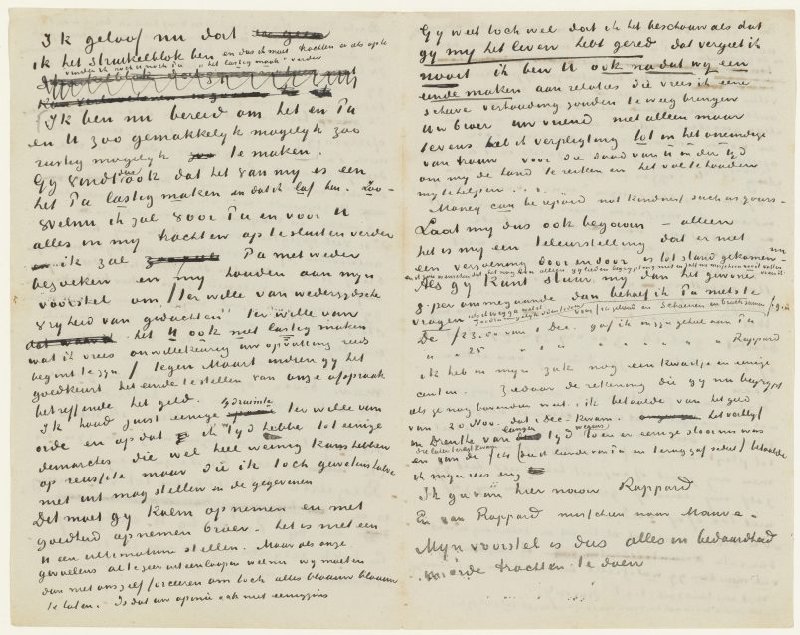 Ik geloof nu dat
ik het struikelblok ben en dus ik moet trachten er als op te
Ik ben nu bereid om het en Pa
en U zoo gemakkelyk mogelyk zoo
rustig mogelyk te maken.
Gy vindt dus ook dat het van my is een
het Pa lastig maken en dat ik laf ben. Zoo-
Welnu ik zal voor Pa en voor U
alles in my trachten op te sluiten verder
ik zal Pa met weder
bezoeken en my houden aan myn
voorstel om, (ter wille van wederzydsche
vryheid van gedachten ter wille van
het U ook niet lastig maken
wat ik vrees onwillekeurig uw opvatting reeds
begint te zyn) tegen Maart indien gy het
goedkeurt het einde te stellen van onze afspraak
betreffende het geld.
Ik houd juist eenige tydruimte ter wille van
orde en opdat ik tyd hebbe tot eenige
demarches die wel heel weinig kans hebben
op reussite maar die ik toch gewetenshalve
niet uit mag stellen in de gegevenen
Dit moet gy kalm opnemen en met
goedheid opnemen broer. het is niet een
U een ultimatum stellen. Maar als onze
gevoelens al te zeer uiteenloopen welnu wy moeten
dan niet ons zelf forceeren om toch alles blaauw blaauw
te laten. Is dat uw opinie ook niet eenigzins
Gy weet toch wel dat ik het beschouw als dat
gy my het leven hebt gered dat vergeet ik
nooit ik ben U ook nadat wy een
einde maken aan relaties die vrees ik eene
scheve verhouding zouden te weeg brengen
Uw broer uw vriend niet alleen maar
tevens heb ik verpligting tot in het oneindige
van trouw voor die daad van U in der tyd
om my de hand te reiken en het vol te houden
my te helpen . . .
Money can be repaid not kindness such as yours.
Laat my dus ook begaan - alleen
het is my een teleurstelling dat er niet nu
een verzoening door en door is tot stand gekomen -
Als gy kunt stuur my dan het gewone
s.v.p. per ommegaande dan behoef ik Pa niets te
vragen
De /23.80 van 1 Dec. gaf ik in zyn geheel aan Pa
" " 25 " " " " " " Rappard
ik heb in myn zak nog een kwartje en eenige
centen. Ziedaar de rekening die gy nu begrypt
als ge nog bovendien weet. ik betaalde van het geld
van 20 Nov. dat 1 Dec. kwam. het verblyf
in Drenthe van langen tyd toen er eenige stoornis was
die later terecht kwam
ik myn reis enz
Ik ga van hier naar Rappard
En van Rappard misschien naar Mauve.
Myn voorstel is dus alles in bedaardheid
in orde trachten te doen